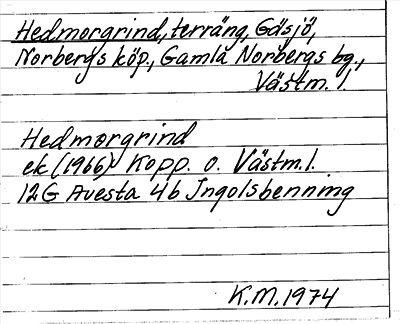 Hedmorgrind, terräng, Gäsjö,
Norbergs köp., Gamla Norbergs bg.,
Västm. l.
Hedmorgrind
ek (1966) Kopp. o. Västm.l.
12G Avesta 4b Ingolsbenning
K.M. 1974